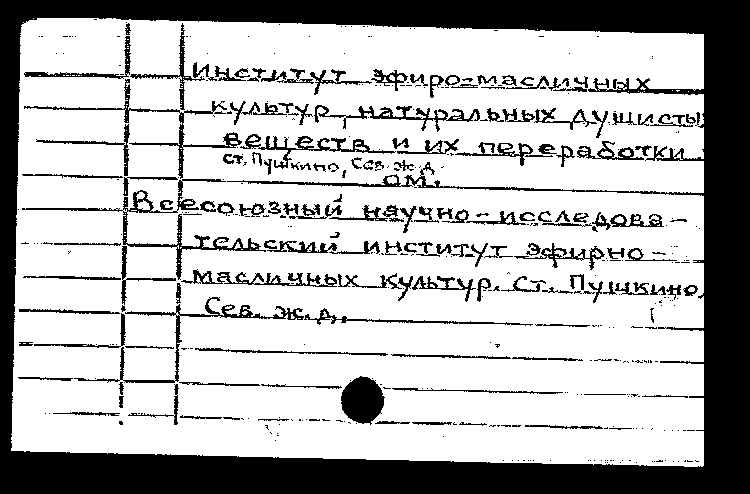 Институт эфиро-масличных
культур, натуральных душисты
веществ и их переработки.
ст. Пушкино, Сев. ж.д.
см.
Всесоюзный научно-исследова-
тельский институт эфирно-
масличных культур. Ст. Пушкино,
Сев. ж.д.